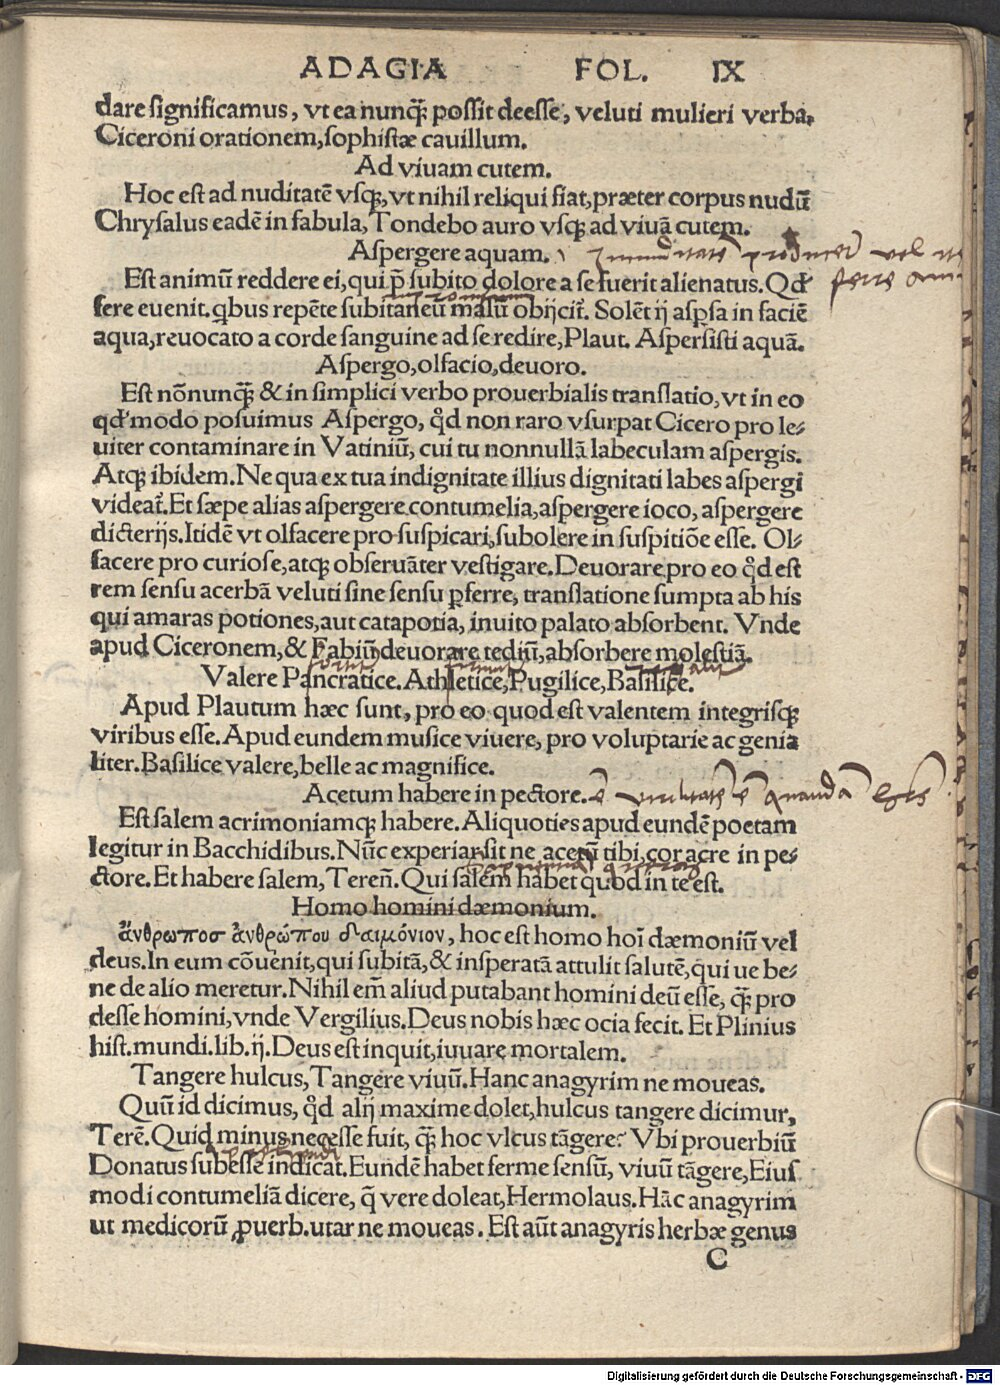 ADAGIA FOL. IX
dare significamus, vt ea nunq̃ꝫ possit deesse, veluti mulieri verba,
Ciceroni orationem, sophistæ cauillum.
Ad viuam cutem.
Hoc est ad nuditatē vsqꝫ, vt nihil reliqui fiat, præter corpus nudū
Chrysalus eadē in fabula, Tondebo auro vsqꝫ ad viuā cutem.
Aspergere aquam.
Est animū reddere ei, qui p̄ subito dolore a se fuerit alienatus. Qđ
fere euenit. qbus repēte subitaneū malū obijcit᷑. Solēt ij aspsa in faciē
aqua, reuocato a corde sanguine ad se redire, Plaut. Aspersisti aquā.
Aspergo, olfacio, deuoro.
Est nōnunq̃ꝫ & in simplici verbo prouerbialis translatio, vt in eo
qđ modo posuimus Aspergo, qđ non raro vsurpat Cicero pro le⸗
uiter contaminare in Vatiniū, cui tu nonnullā labeculam aspergis.
Atqꝫ ibidem. Ne qua ex tua indignitate illius dignitati labes aspergi
videat᷑. Et sæpe alias aspergere contumelia, aspergere ioco, aspergere
dicterijs. Itidē vt olfacere pro suspicari, subolere in suspitiōe esse. Ol⸗
facere pro curiose, atqꝫ obseruāter vestigare. Deuorare pro eo qđ est
rem sensu acerbā veluti sine sensu ꝑferre, translatione sumpta ab his
qui amaras potiones, aut catapotia, inuito palato absorbent. Vnde
apud Ciceronem, & Fabiū deuorare tediū, absorbere molestiā.
Valere Pancratice. Athletice, Pugilice, Basilice.
Apud Plautum hæc sunt, pro eo quod est valentem integrisqꝫ
viribus esse. Apud eundem musice viuere, pro voluptarie ac genia
liter. Basilice valere, belle ac magnifice.
Acetum habere in pectore.
Est salem acrimoniamqꝫ habere. Aliquoties apud eundē poetam
legitur in Bacchidibus. Nūc experiar sit ne acetū tibi, cor acre in pe⸗
ctore. Et habere salem, Tereñ. Qui salem habet quod in te est.
Homo homini dæmonium.
ἄνθρωποσ ἀνθρώπου δαιμόνιον, hoc est homo hoī dæmoniū vel
deus. In eum cōuenit, qui subitā, & insperatā attulit salutē, qui ue be⸗
ne de alio meretur. Nihil em̄ aliud putabant homini deū esse, q̃ꝫ pro
desse homini, vnde Vergilius. Deus nobis hæc ocia fecit. Et Plinius
hist. mundi. lib. ij. Deus est inquit, iuuare mortalem.
Tangere hulcus, Tangere viuū. Hanc anagyrim ne moueas.
Quū id dicimus, qđ alij maxime dolet, hulcus tangere dicimur,
Terē. Quid minus necesse fuit, q̃ꝫ hoc vlcus tāgere? Vbi prouerbiū
Donatus subesse indicat. Eundē habet ferme sensū, viuū tāgere, Eius
modi contumeliā dicere, q̄ vere doleat, Hermolaus. Hāc anagyrim
ut medicorū ꝓuerb. utar ne moueas. Est aūt anagyris herbæ genus
C
Digitalisierung gefördert durch die Deutsche Forschungsgemeinschaft - DFG